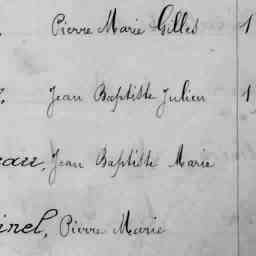 Pierre Marie Gilles 1
Jean Baptiste Julien 1
eau, Jean Baptiste Marie
inel, Pierre Marie